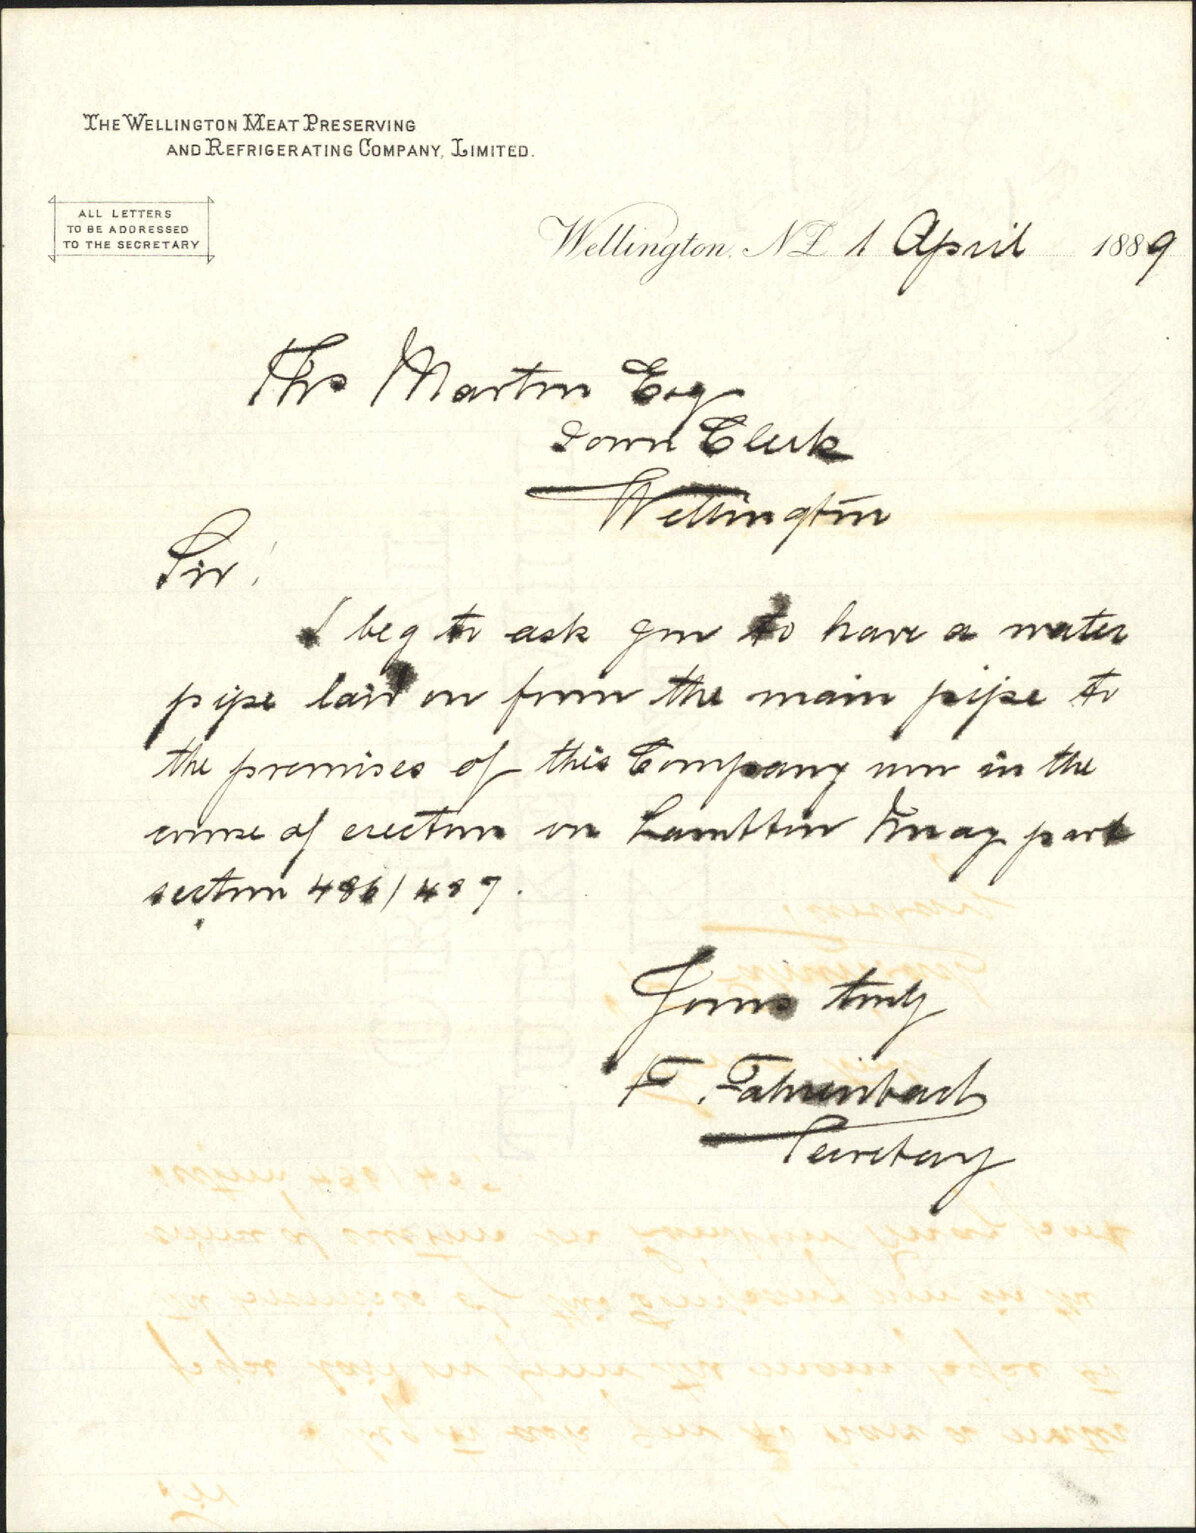 THE WELLINGTON MEAT PRESERVING
AND REFRIGERATING COMPANY, LIMITED.
ALL LETTERS
TO BE ADDRESSED
TO THE SECRETARY
Wellington, NZ 1 April 1889
Thos Martin Esq
Town Clerk
Wellington
Sir!
I beg to ask you to have a water
pipe laid on from the main pipe to
the premises of this Company now in the
course of erection on Lambton Quay part
section 486/487.
Yours truly
F. Fahrenbach
Secretary